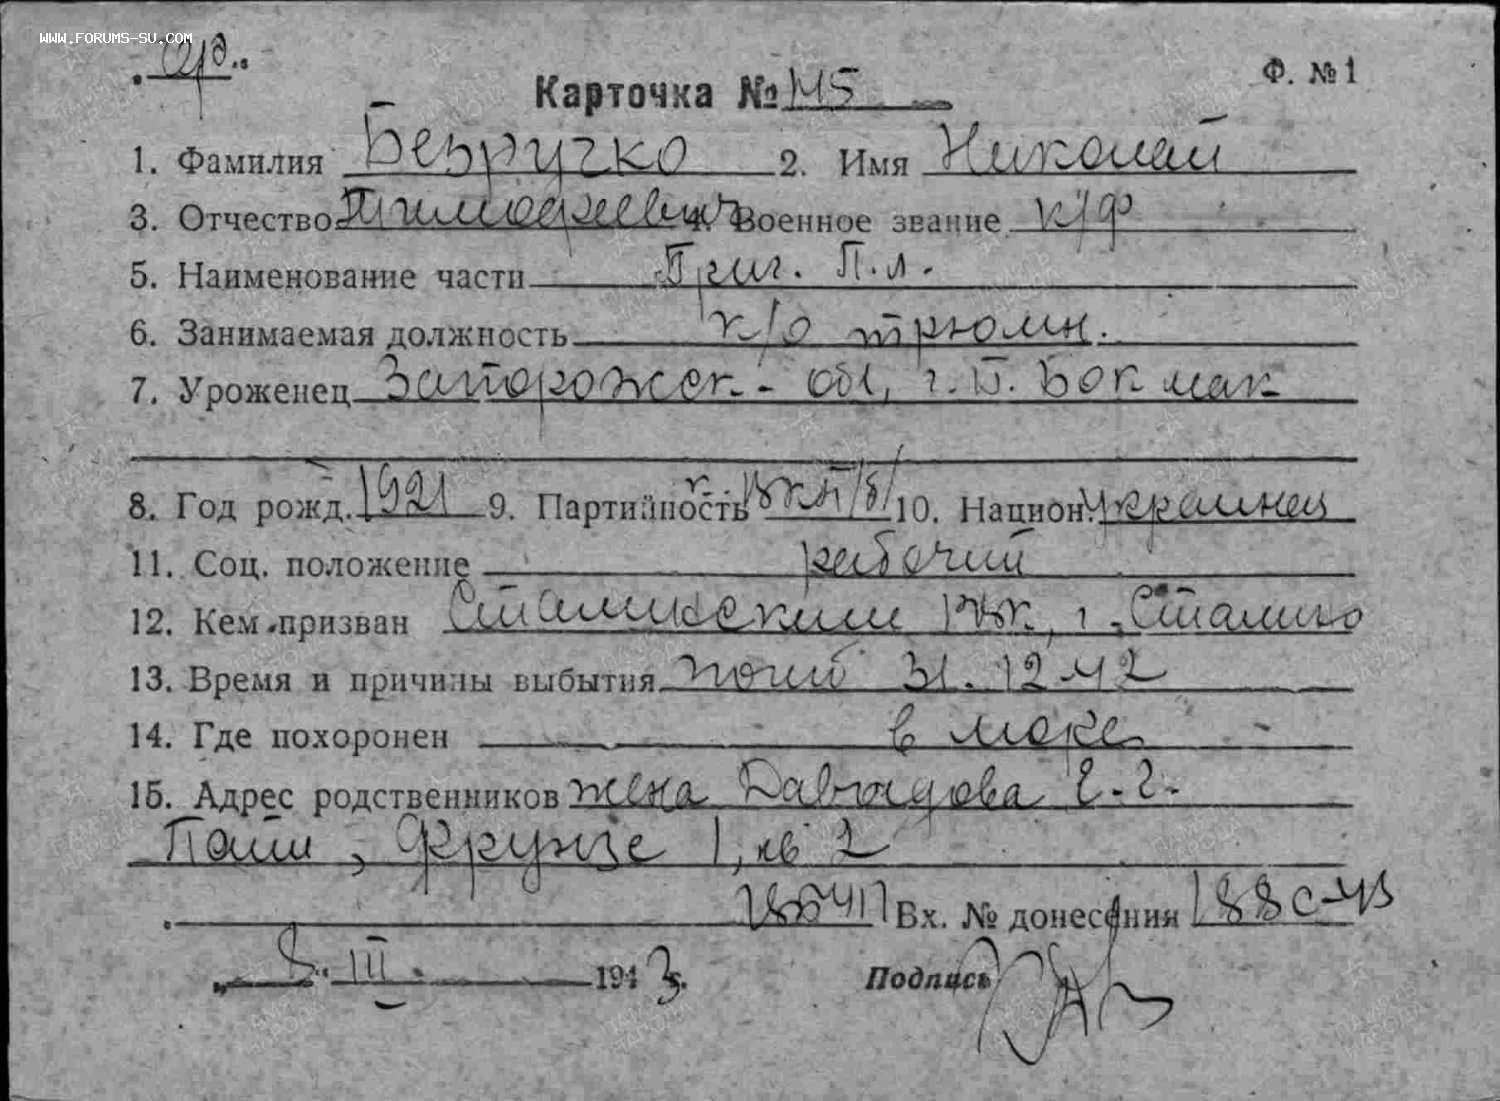 WWW.FORUMS-SU.COM
Ф. №1
Карточка №
1. Фамилия Безручко 2. Имя Николай
3. Отчество Тимофеевич 4. Военное звание к/ф
5. Наименование части Бриг. П.л.
6. Занимаемая должность к/о трюмн.
7. Уроженец Запорожск. обл, г. Б. Токмак
8. Год рожд. 1921 9. Партийность к. ВКП/б/ 10. Национ. украинец
11. Соц. положение рабочий
12. Кем призван Сталинским РВК, г. Сталино
13. Время и причины выбытия погиб 31.12.42
14. Где похоронен в море
15. Адрес родственников жена Давыдова Е.Г.
Поти, Фрунзе 1, кв 2
Вх. № донесения 188с-43
8. III. 1943.
Подпись